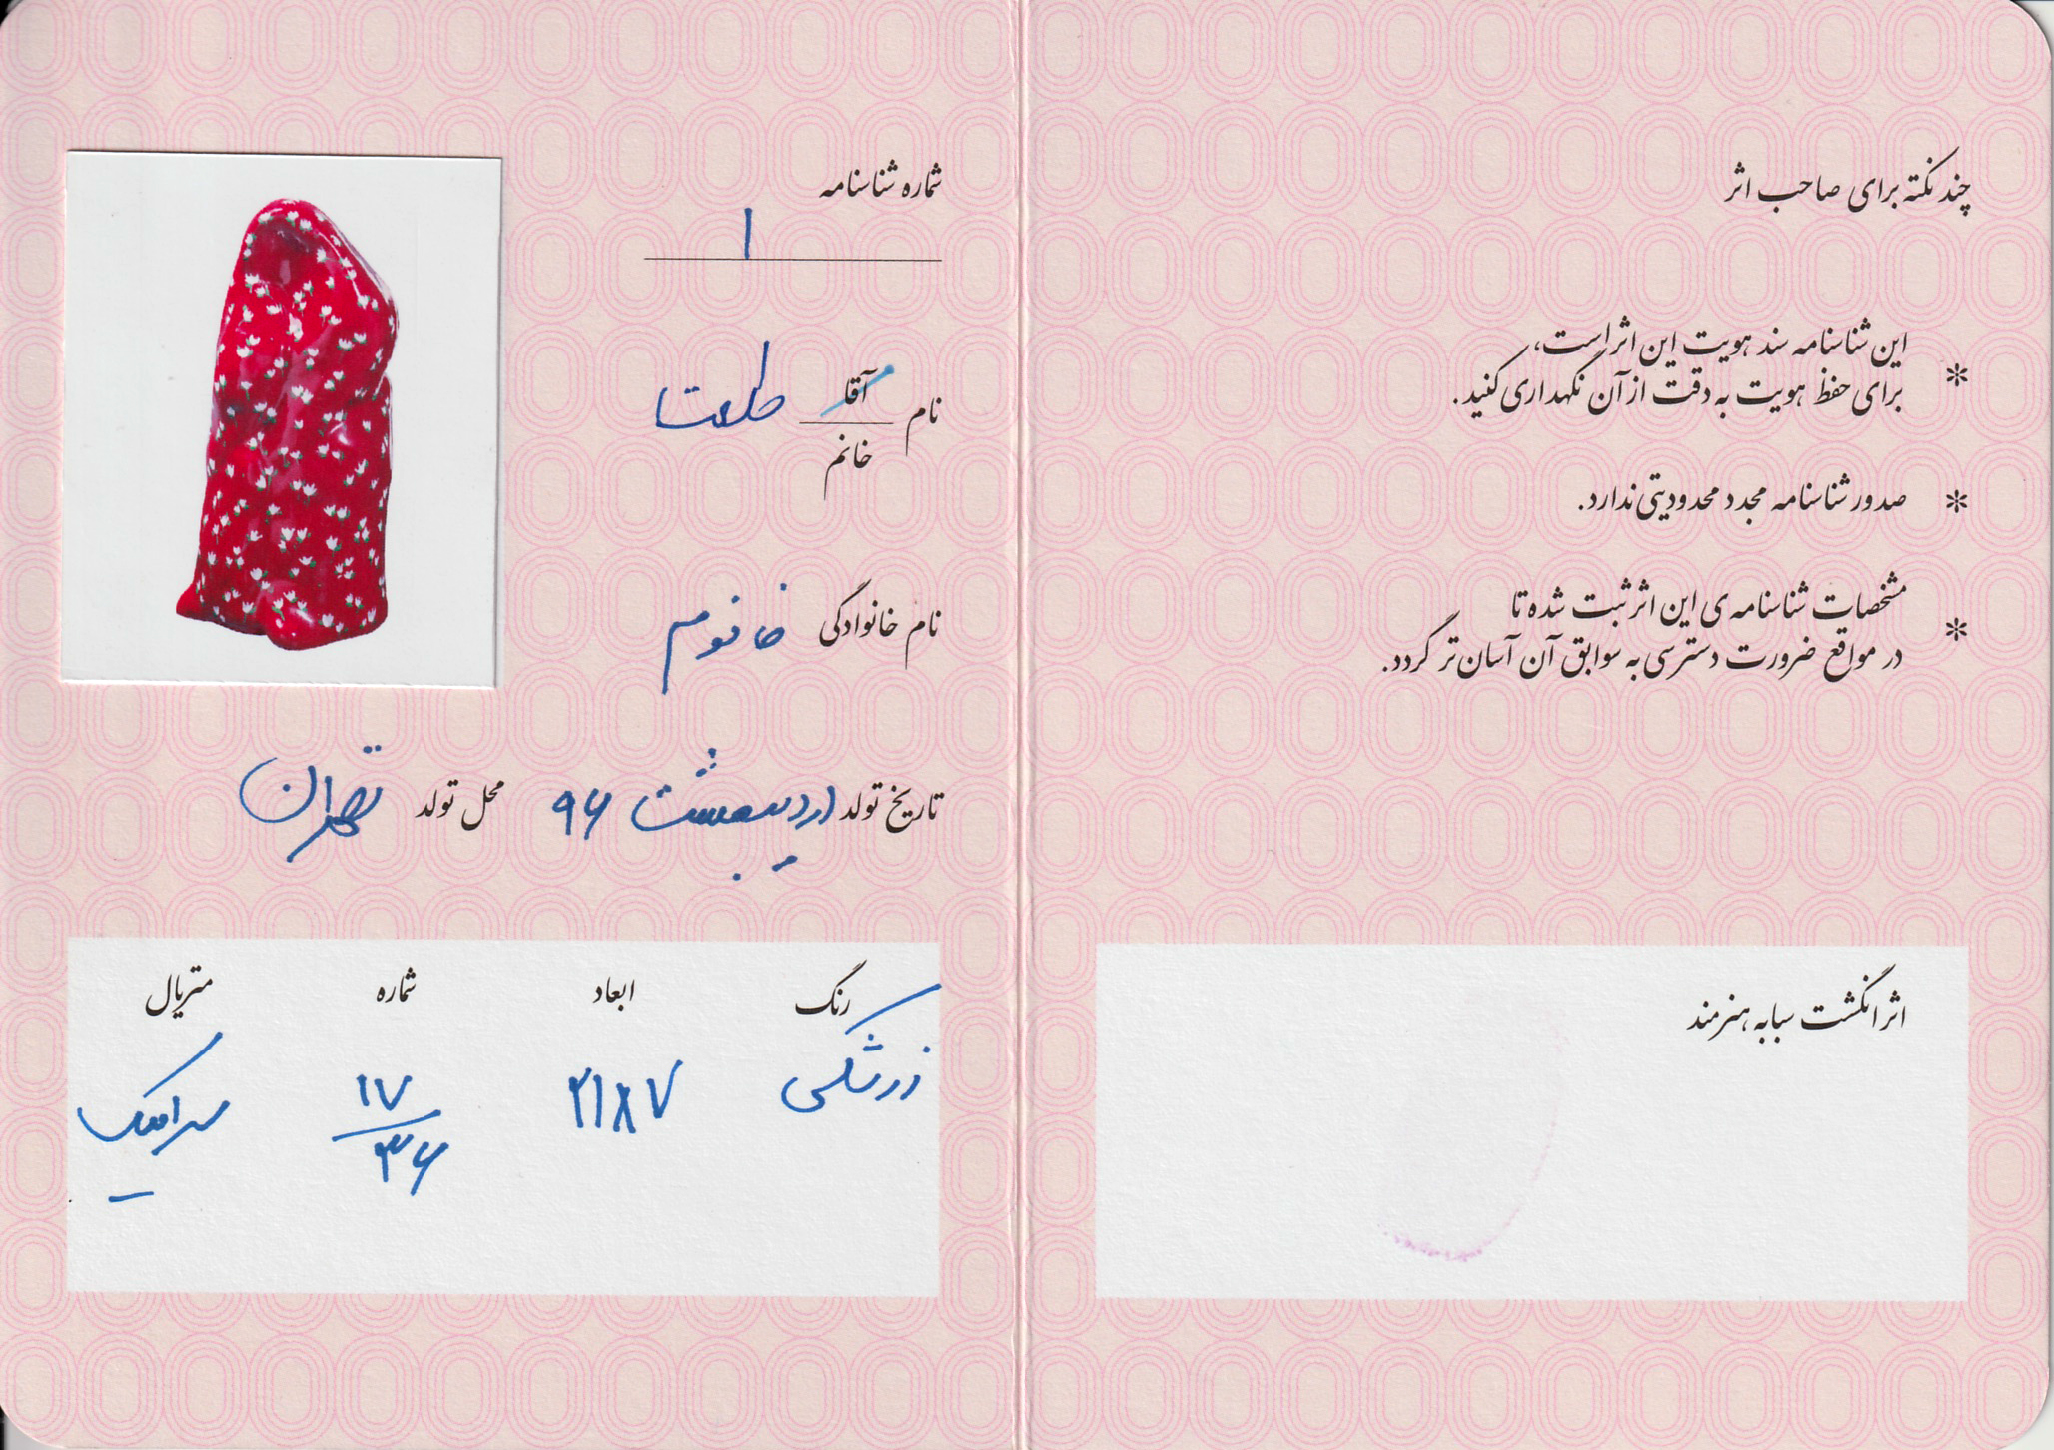 چند نکته برای صاحب اثر
این شناسنامه سند هویت این اثر است،
* برای حفظ هویت به دقت از آن نگهداری کنید.
* صدور شناسنامه مجدد محدودیتی ندارد.
مشخصات شناسنامه‌ی این اثر ثبت شده تا
* در مواقع ضرورت دسترسی به سوابق آن آسان‌تر گردد.
اثر انگشت سبابه هنرمند
شماره شناسنامه
۱
نام آقا طلعت
خانم
نام خانوادگی خانوم
تاریخ تولد اردیبهشت ۹۶ محل تولد تهران
رنگ ابعاد شماره متریال
زرشکی ۲۱×۷ ۱۷/۳۶ سرامیک